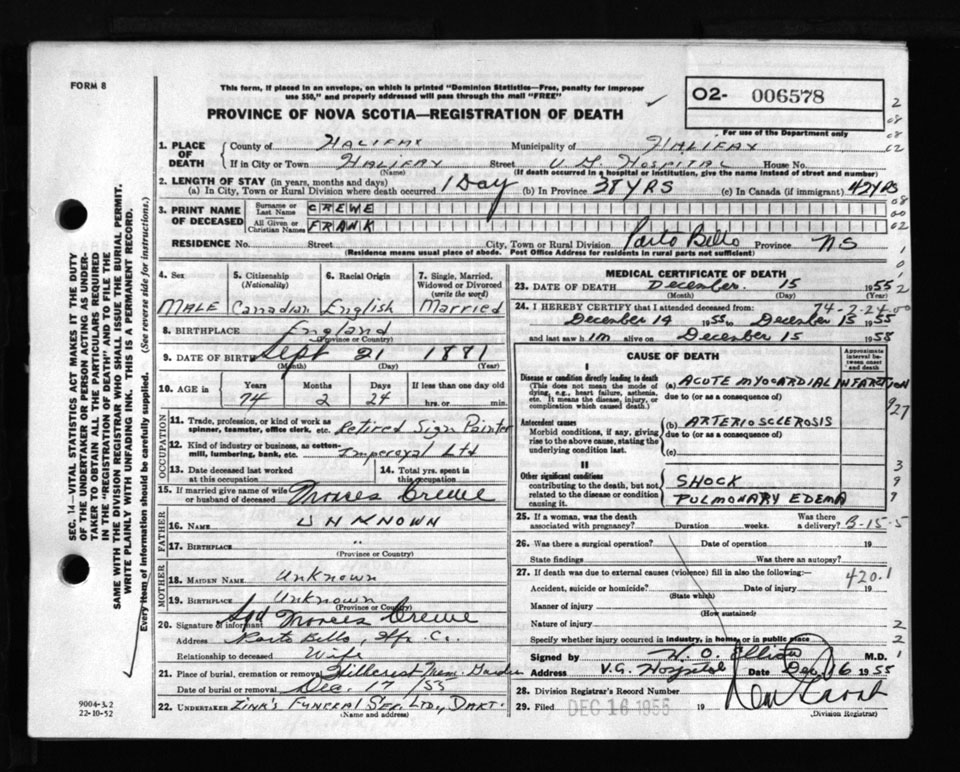 FORM 8
This form, if placed in an envelope, on which is printed "Dominion Statistics—Free, penalty for improper
use $50," and properly addressed will pass through the mail "FREE"
PROVINCE OF NOVA SCOTIA—REGISTRATION OF DEATH
02- 006578
For use of the Department only
2
08
08
02
1. PLACE OF DEATH County of HALIFAX Municipality of HALIFAX
If in City or Town HALIFAX Street V G. HOSPITAL House No.
(Name) (If death occurred in a hospital or institution, give the name instead of street and number)
2. LENGTH OF STAY (in years, months and days)
(a) In City, Town or Rural Division where death occurred 1 Day (b) In Province 38 YRS (c) In Canada (if immigrant) 42 YRS
3. PRINT NAME OF DECEASED Surname or Last Name CREWE
All Given or Christian Names FRANK
08
00
02
RESIDENCE No. Street City, Town or Rural Division Porto Bello Province NS
(Residence means usual place of abode. Post Office Address for residents in rural parts not sufficient)
4. Sex MALE
5. Citizenship (Nationality) Canadian
6. Racial Origin English
7. Single, Married, Widowed or Divorced (write the word) Married
8. BIRTHPLACE England
(Province or Country)
9. DATE OF BIRTH Sept 21 1881
(Month) (Day) (Year)
10. AGE in Years Months Days If less than one day old
74 2 24 hrs. or min.
OCCUPATION
11. Trade, profession, or kind of work as spinner, teamster, office clerk, etc. Retired Sign Painter
12. Kind of industry or business, as cotton-mill, lumbering, bank, etc. Imperoyal Ltd
13. Date deceased last worked at this occupation
14. Total yrs. spent in this occupation
15. If married give name of wife or husband of deceased Crewe
FATHER
16. NAME UNKNOWN
17. BIRTHPLACE "
(Province or Country)
MOTHER
18. MAIDEN NAME Unknown
19. BIRTHPLACE Unknown
(Province or Country)
20. Signature of informant Sgd Crewe
Address Porto Bello, Hfx. C.
Relationship to deceased Wife
21. Place of burial, cremation or removal Hillcrest Mem. Garden
Date of burial or removal Dec. 17 / 55
22. UNDERTAKER ZINK'S FUNERAL SER. LTD., DART.
(Name and address)
MEDICAL CERTIFICATE OF DEATH
23. DATE OF DEATH December 15 1955
(Month) (Day) (Year)
24. I HEREBY CERTIFY that I attended deceased from: 74-2-24-00
December 14 1955 to December 15 1955
and last saw him alive on December 15 1955
CAUSE OF DEATH
Approximate interval between onset and death
I
Disease or condition directly leading to death
(This does not mean the mode of dying, e.g., heart failure, asthenia, etc. It means the disease, injury, or complication which caused death.)
(a) ACUTE MYOCARDIAL INFARCTION
due to (or as a consequence of)
927
Antecedent causes
Morbid conditions, if any, giving rise to the above cause, stating the underlying condition last.
(b) ARTERIOSCLEROSIS
due to (or as a consequence of)
(c)
II
Other significant conditions
contributing to the death, but not related to the disease or condition causing it.
SHOCK
PULMONARY EDEMA
3
9
9
25. If a woman, was the death associated with pregnancy? Duration weeks. Was there a delivery? B-15-5
26. Was there a surgical operation? Date of operation 19
State findings Was there an autopsy?
27. If death was due to external causes (violence) fill in also the following:— 420.1
Accident, suicide or homicide? Date of injury 19
(State which)
Manner of injury
(How sustained)
Nature of injury
Specify whether injury occurred in industry, in home, or in public place
Signed by M.D.
Address V.G. Hospital Date Dec 16 1955
28. Division Registrar's Record Number
29. Filed DEC 16 1955 19
(Division Registrar)
SEC. 14—VITAL STATISTICS ACT MAKES IT THE DUTY
OF THE UNDERTAKER OR PERSON ACTING AS UNDERTAKER
TO OBTAIN ALL THE PARTICULARS REQUIRED
IN THE "REGISTRATION OF DEATH" AND TO FILE THE
SAME WITH THE DIVISION REGISTRAR WHO SHALL ISSUE THE BURIAL PERMIT.
WRITE PLAINLY WITH UNFADING INK. THIS IS A PERMANENT RECORD.
Every item of information should be carefully supplied. (See reverse side for instructions.)
9004-3.2
22-10-52